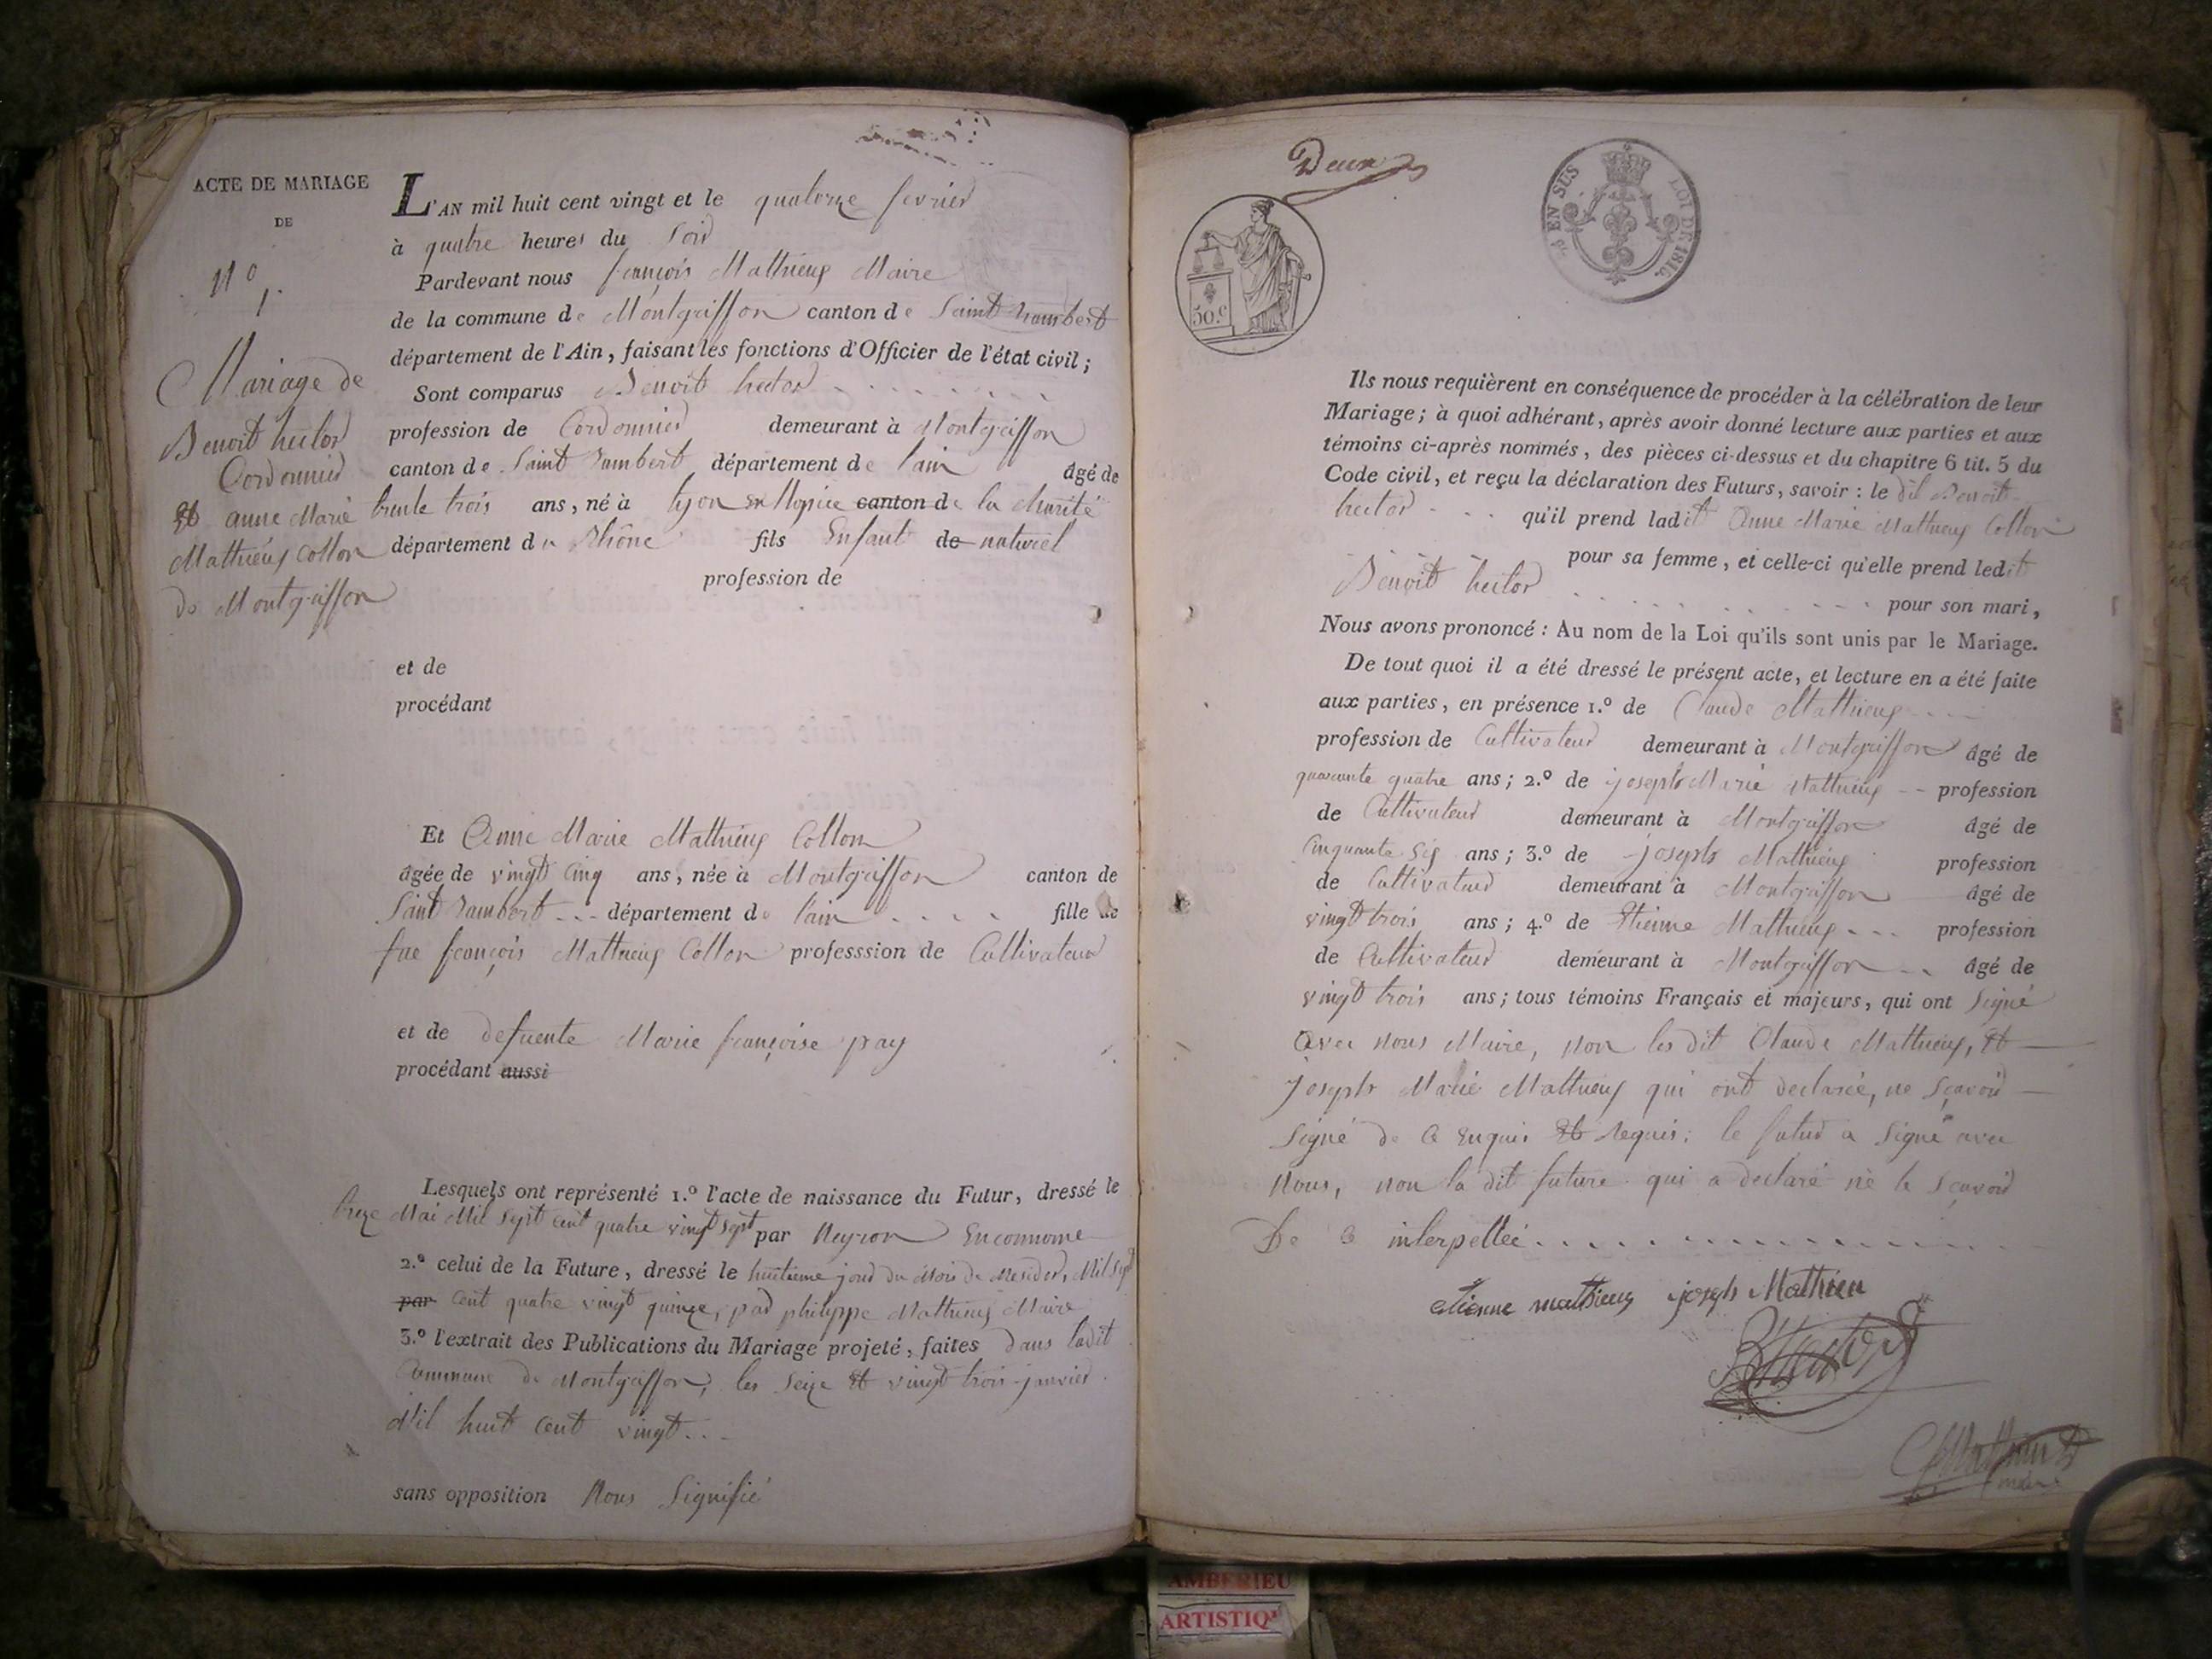 ACTE DE MARIAGE
DE
N.º
1.
Mariage de
Benoit hector
Cordonnier
Et anne Marie
Mathieux Collon
de Montgriffon
L'AN mil huit cent vingt et le quatorze fevrier
à quatre heures du Soir
Pardevant nous françois Mathieux Maire
de la commune de Montgriffon canton de Saint Rambert
département de l'Ain, faisant les fonctions d'Officier de l'état civil;
Sont comparus Benoit hector
profession de Cordonnier demeurant à Montgriffon
canton de Saint Rambert département de l'ain âgé de
trente trois ans, né à lyon hospice canton de la charité
département du Rhône fils Enfant de naturel
profession de
et de
procédant
Et Anne Marie Mathieux Collon
âgée de vingt Cinq ans, née à Montgriffon canton de
Saint Rambert - - - département de l'ain . . . . fille de
feu françois Mathieux Collon professsion de Cultivateur
et de defuente Marie françoise pay
procédant aussi
Lesquels ont représenté 1.º l'acte de naissance du Futur, dressé le
Mai Mil Sept cent quatre vingt sept par Neyron Enconnome
2.º celui de la Future, dressé le huitieme jour du Mois de Messidor, Mil Sept
par Cent quatre vingt quinze, par philippe Mathieux Maire
3.º l'extrait des Publications du Mariage projeté, faites dans ladit
Commune de Montgriffon, les Seize Et vingt trois janvier
Mil huit Cent vingt . . -
sans opposition Nous Signifié
Deux
EN SUS
LOI DE 1816.
50.c
Ils nous requièrent en conséquence de procéder à la célébration de leur
Mariage; à quoi adhérant, après avoir donné lecture aux parties et aux
témoins ci-après nommés, des pièces ci-dessus et du chapitre 6 tit. 5 du
Code civil, et reçu la déclaration des Futurs, savoir : le dit Benoit
hector - - - qu'il prend ladit Anne Marie Mathieux Collon
pour sa femme, et celle-ci qu'elle prend ledit
Benoit hector . . . . . . . . . pour son mari,
Nous avons prononcé : Au nom de la Loi qu'ils sont unis par le Mariage.
De tout quoi il a été dressé le présent acte, et lecture en a été faite
aux parties, en présence 1.º de Claude Mathieux
profession de Cultivateur demeurant à Montgriffon âgé de
quarante quatre ans; 2.º de joseph Marie Mathieux - - profession
de Cultivateur demeurant à Montgriffon âgé de
Cinquante Six ans; 3.º de joseph Mathieux profession
de Cultivateur demeurant à Montgriffon âgé de
vingt trois ans; 4.º de Etienne Mathieux - - - profession
de Cultivateur demeurant à Montgriffon - - âgé de
vingt trois ans; tous témoins Français et majeurs, qui ont Signé
Avec nous Maire, non les dit Claude Mathieux, Et
joseph Marie Mathieux qui ont declarée, ne Sçavoir
Signé de Ce Enquis Et Requis; le futur a Signé avec
Nous, non la dit future qui a declaré ne le Sçavoir
De Ce interpellée . . . . . . . . . .
etienne mathieux joseph Mathieu
BHector
Mathieux
maire
AMBERIEU
ARTISTIQ